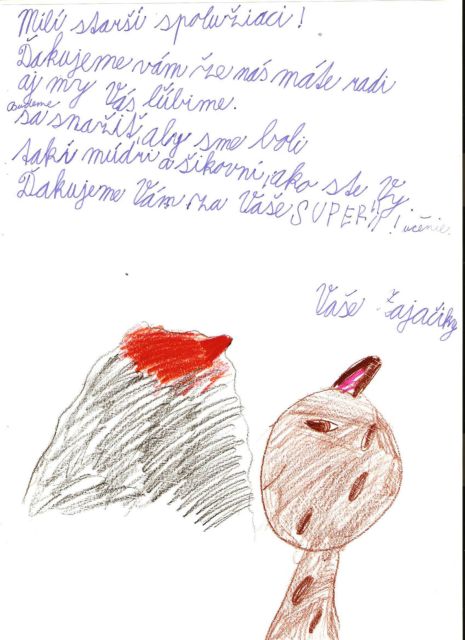 Milí starší spolužiaci!
Ďakujeme vám že nás máte radi
aj my Vás ľúbime.
a budeme
sa snažiť, aby sme boli
takí múdri a šikovní, ako ste Vy.
Ďakujeme Vám za Vaše SUPER! učenie.
Vaše Zajačiky